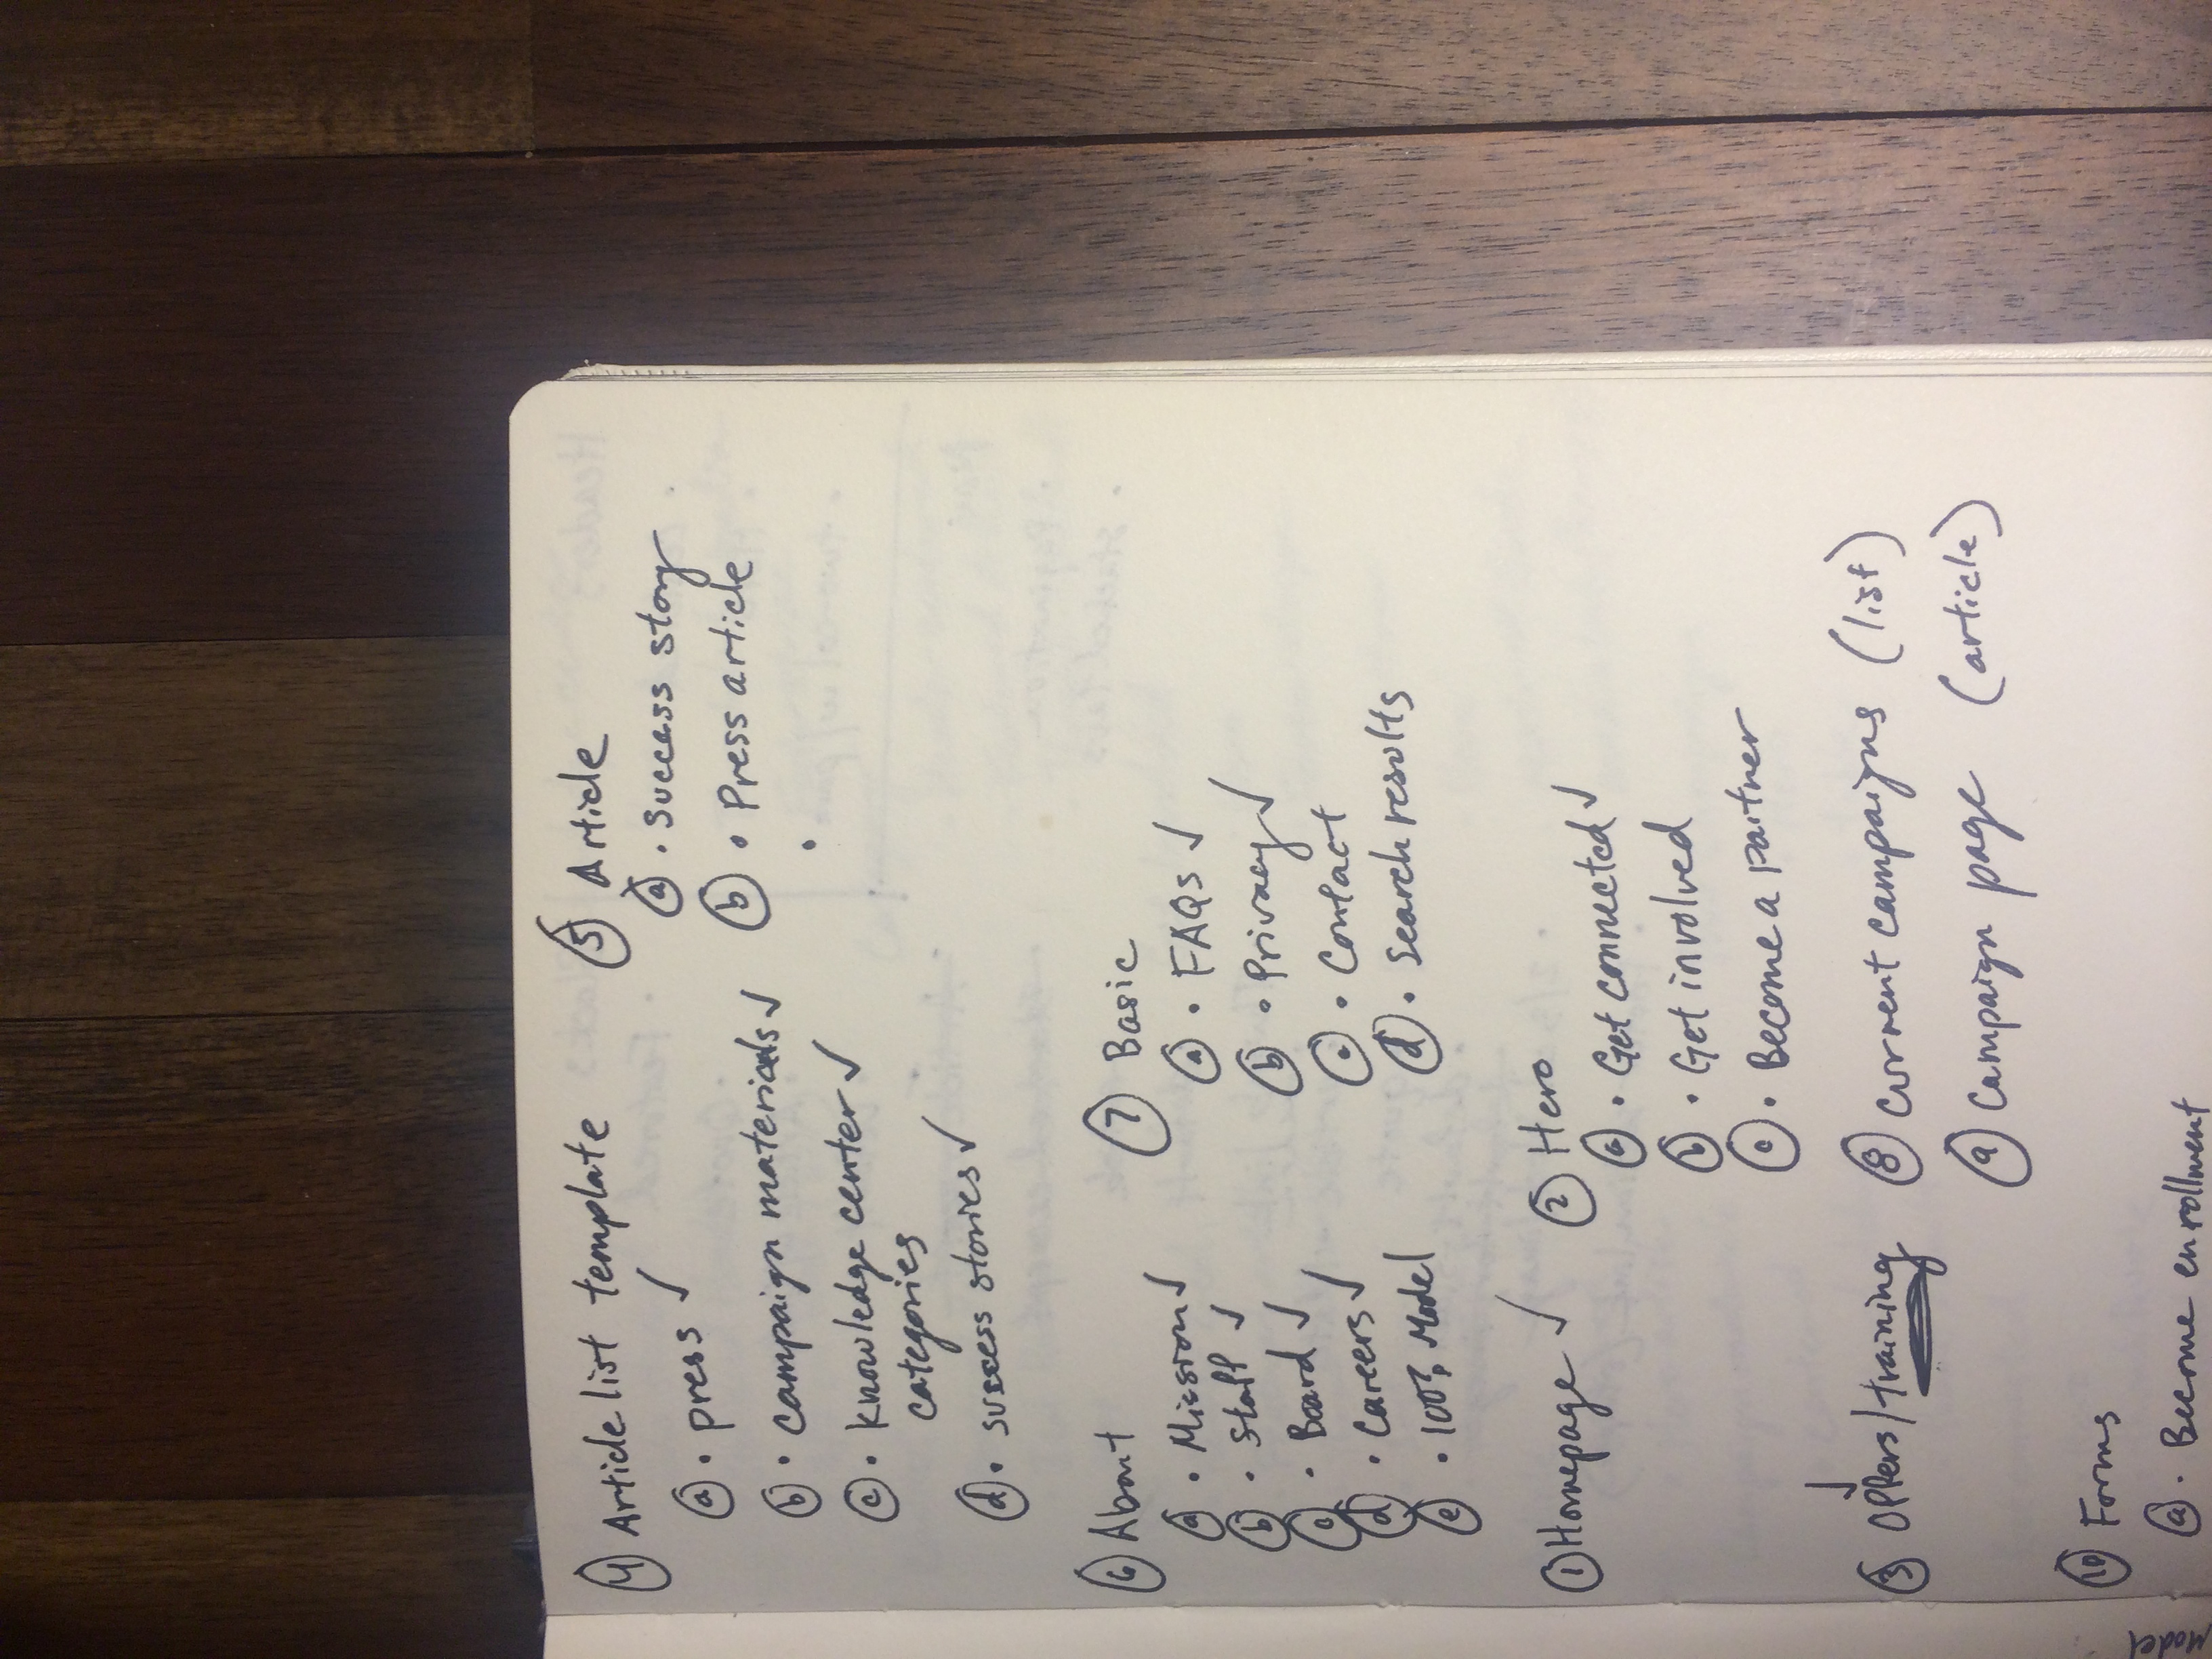 4 Article list template
a • press ✓
b • campaign materials ✓
c • knowledge center ✓
categories
d • success stories ✓
5 Article
a • success story
b • Press article
•
6 About
a • Mission ✓
b • Staff ✓
c • Board ✓
d • Careers ✓
e • 100% Model
7 Basic
a • FAQs ✓
b • Privacy ✓
c • Contact
d • Search results
1 Homepage ✓
2 Hero
a • Get connected ✓
b • Get involved
c • Become a partner
✓
3 Offers/training
8 Current campaigns (list)
9 Campaign page (article)
10 Forms
a • Become enrollment
Model